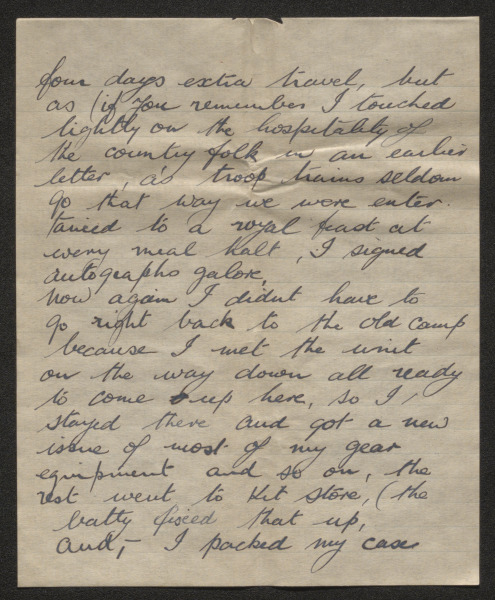 four days extra travel, but
as (if you remember I touched
lightly on the hospitality of
the country folk in an earlier
letter, as troop trains seldom
go that way we were enter-
tained to a royal feast at
every meal halt, I signed
autographs galore,
now again I didnt have to
go right back to the old camp
because I met the unit
on the way down all ready
to come up here, so I
stayed there and got a new
issue of most of my gear
equipment and so on, the
rest went to Kit store, (the
batty fixed that up,
and, - I packed my case